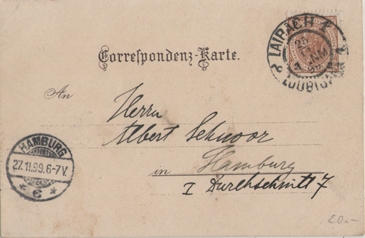 LAIBACH
LJUBLJANA
Correspondenz-Karte.
An
Herrn
Albert Schnoor
in Hamburg
I Durchschnitt 7
HAMBURG
27.11.99.6-7V.
20.-